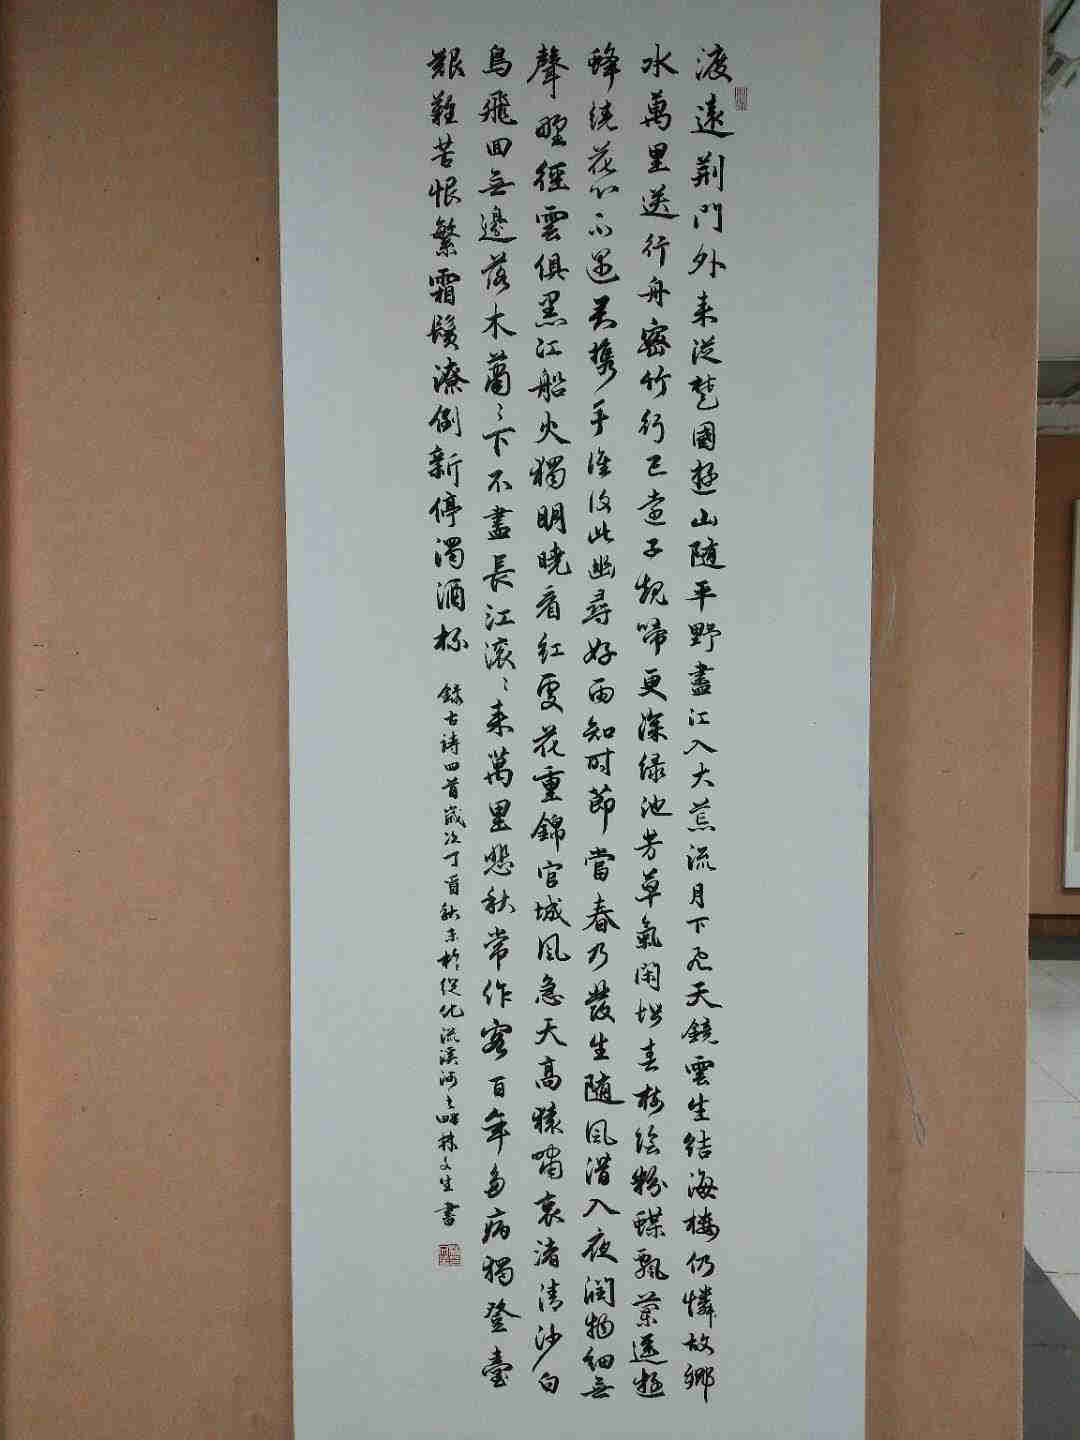 渡遠荆門外来從楚國遊山随平野盡江入大荒流月下飛天鏡雲生結海樓仍憐故鄉
水萬里送行舟密竹行已遠子規啼更深緑池芳草氣閑春樹粉蝶飄蘭逕遊
蜂繞花心不遇君携手誰復此幽尋好雨知時節當春乃發生随風潛入夜潤物細無
聲野徑雲俱黑江船火獨明曉看紅處花重錦官城風急天高猿嘯哀渚清沙白
鳥飛回無邊落木蕭〻下不盡長江滚〻来萬里悲秋常作客百年多病獨登臺
艱難苦恨繁霜鬢潦倒新停濁酒杯
録古詩四首歲次丁酉秋末於從化流溪河之畔林文生書